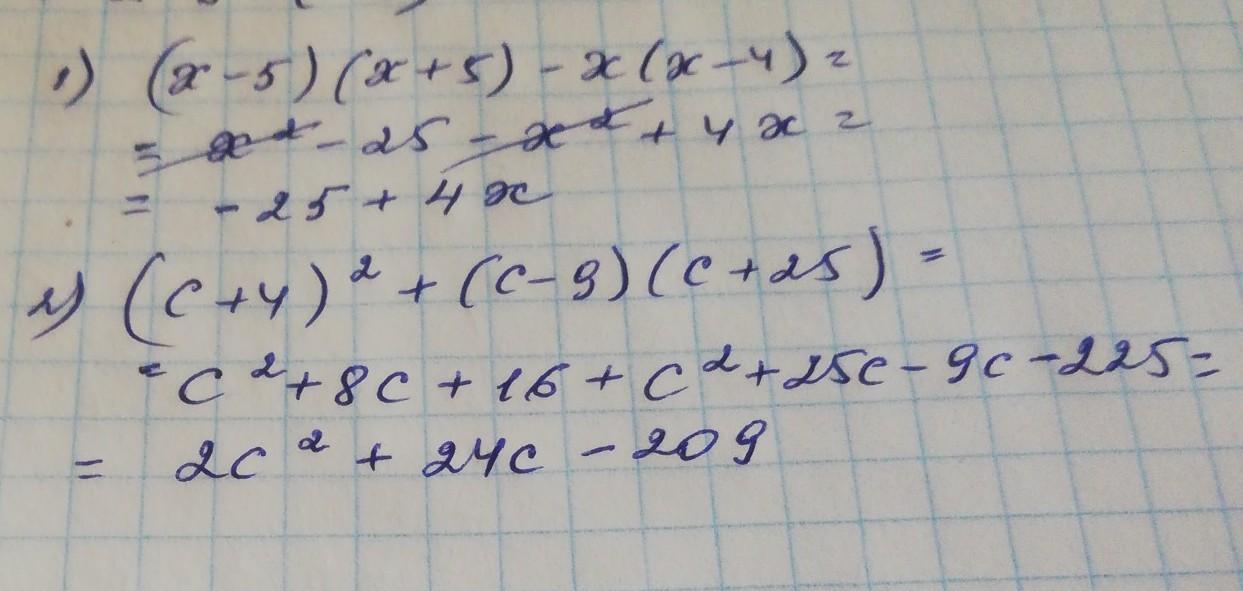 1) (x-5)(x+5) - x(x-4) =
= x² - 25 - x² + 4x =
= -25 + 4x
2) (c+4)² + (c-9)(c+25) =
= c² + 8c + 16 + c² + 25c - 9c - 225 =
= 2c² + 24c - 209